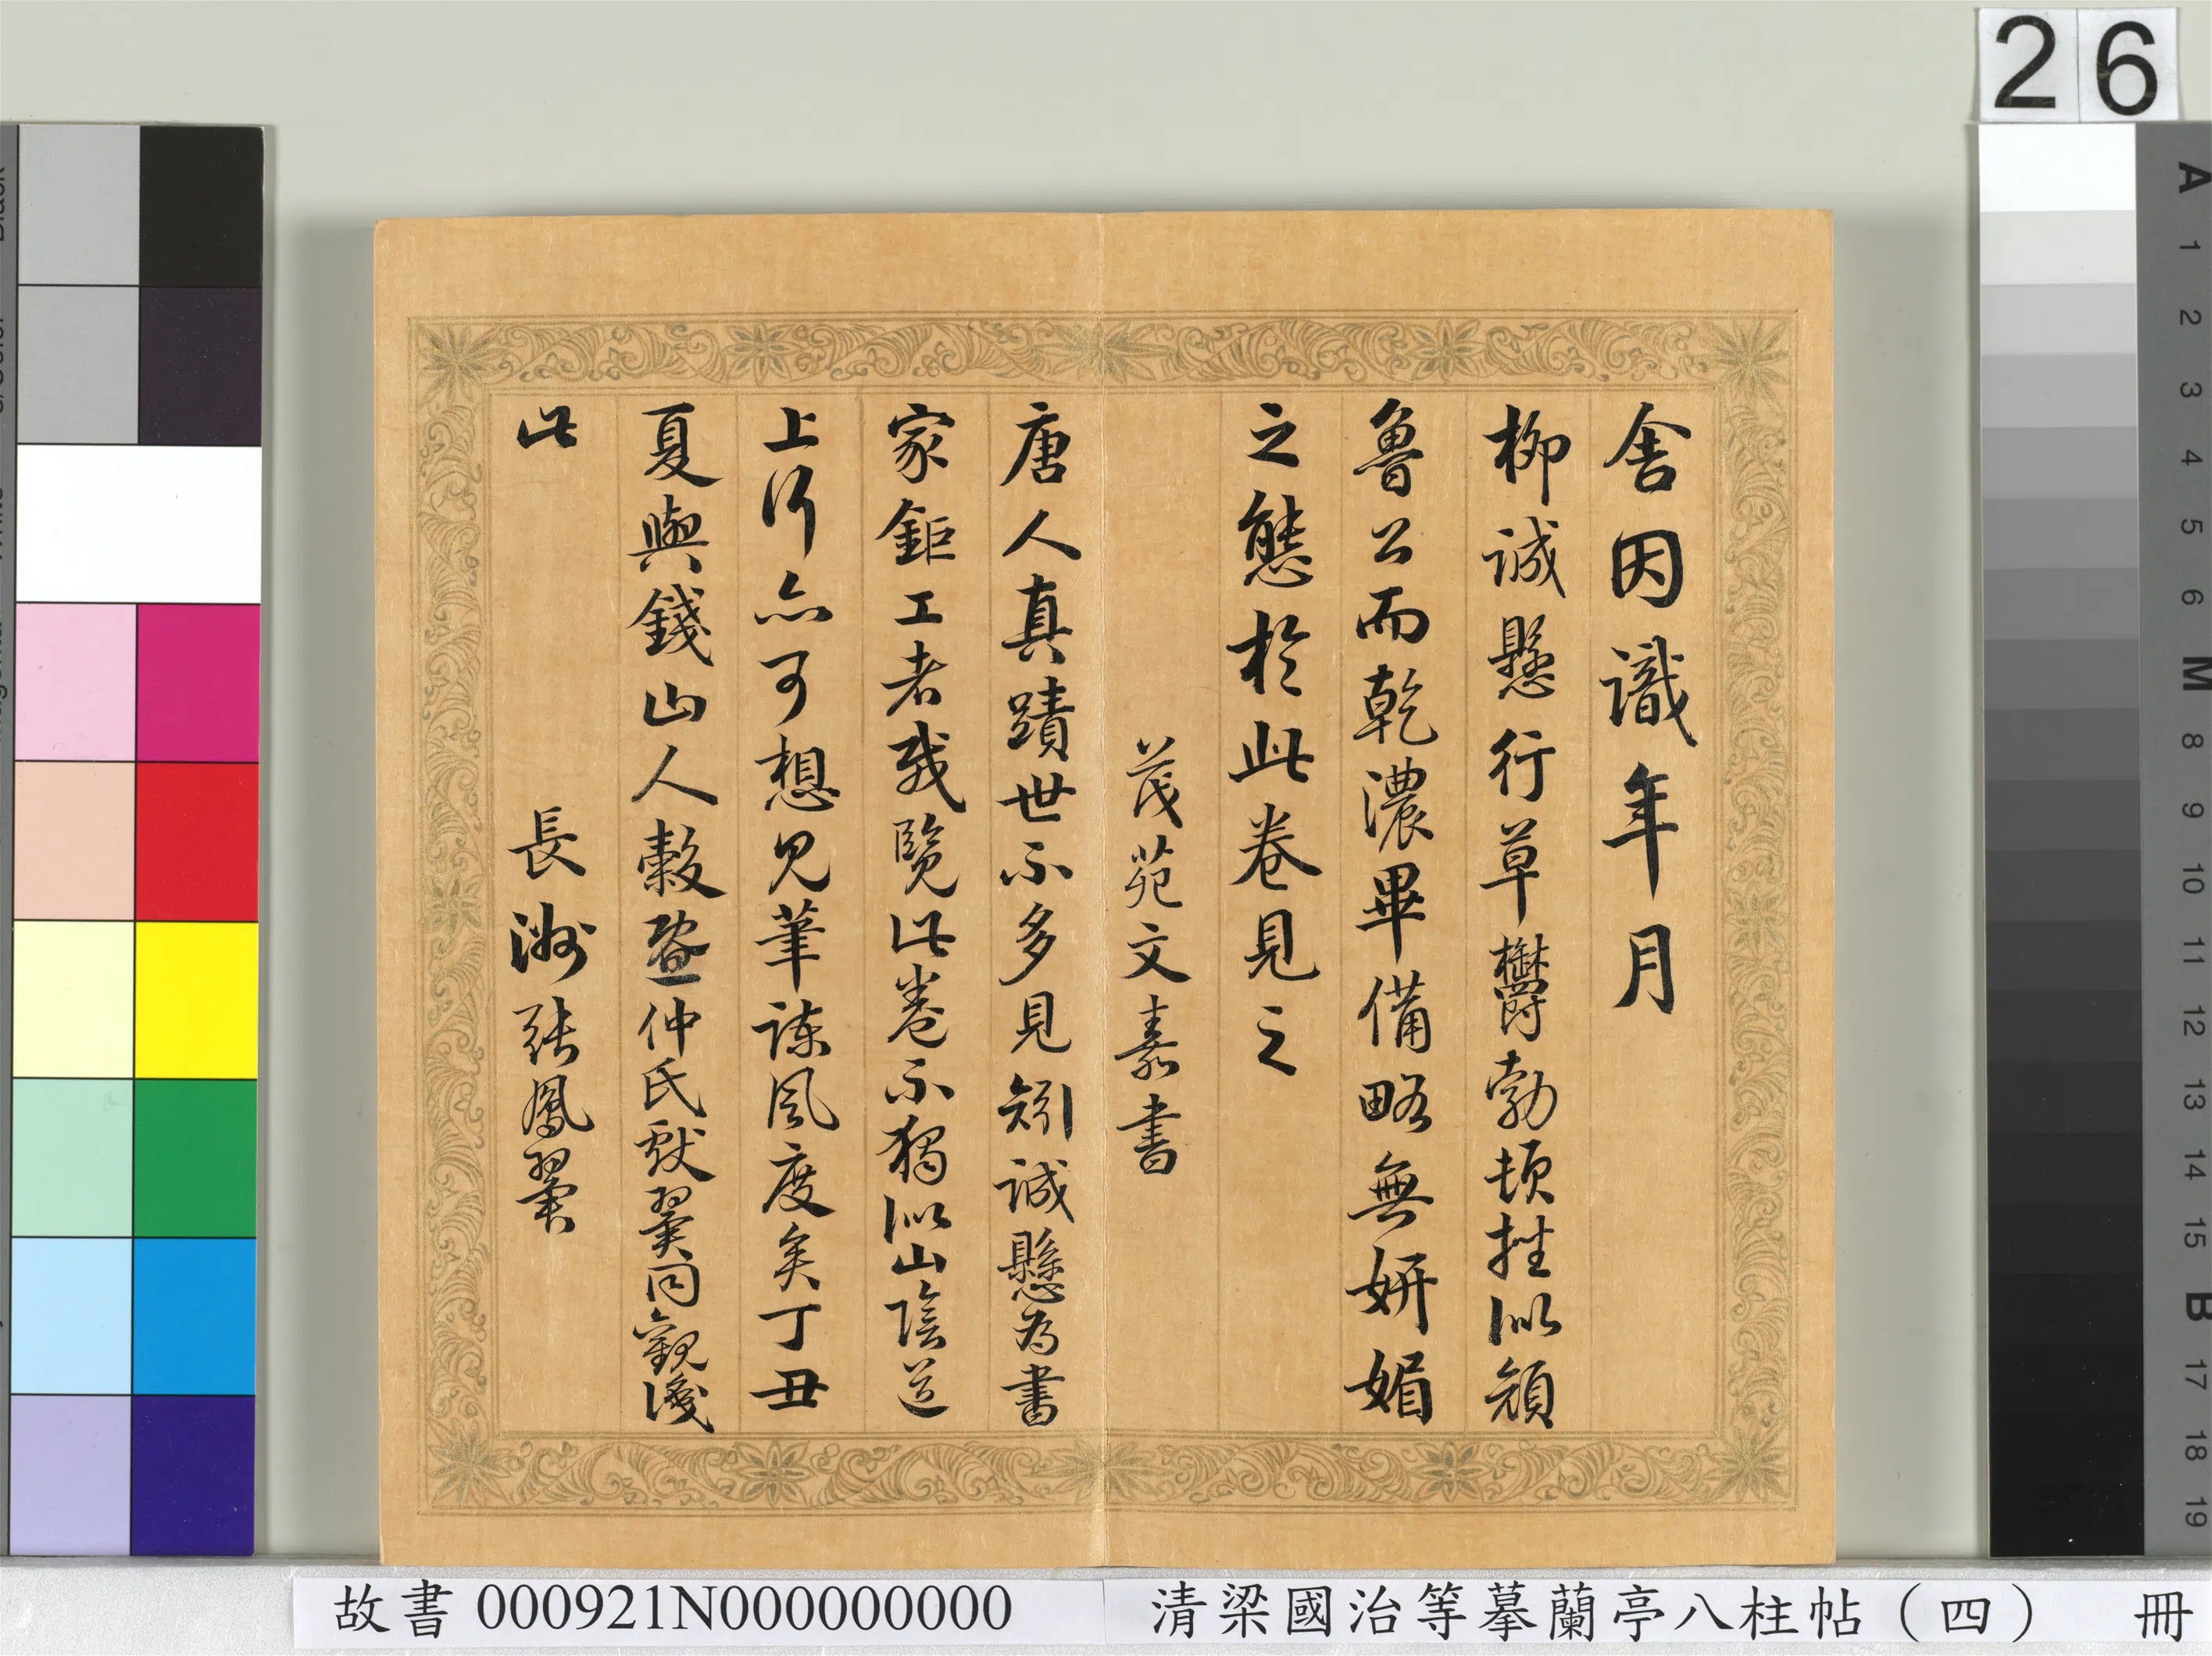 舍因識年月
柳誠懸行草欝勃頓挫似顔
魯公而乾濃畢備略無妍媚
之態於此卷見之
茂苑文嘉書
唐人真蹟世不多見矧誠懸為書
家鉅工者哉覽此卷不獨似山陰道
上行亦可想見筆諫風度矣丁丑
夏與錢山人穀曁仲氏獻翼同觀淺
此
長洲張鳳翼
26
A 1 2 3 4 5 6 M 8 9 10 11 12 13 14 15 B 17 18 19
故書 000921N000000000
清梁國治等摹蘭亭八柱帖（四） 冊